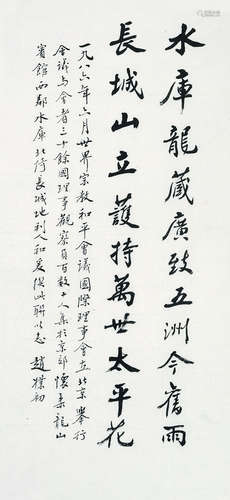 水庫龍藏廣致五洲今舊雨
長城山立護持萬世太平花
一九八六年六月世界宗教和平會議國際理事會在北京舉行
會議與會者三十餘國理事觀察員百數十人集於京郊懷柔龍山
賓館西鄰水庫北倚長城地利人和爰撰此聯以志 趙樸初